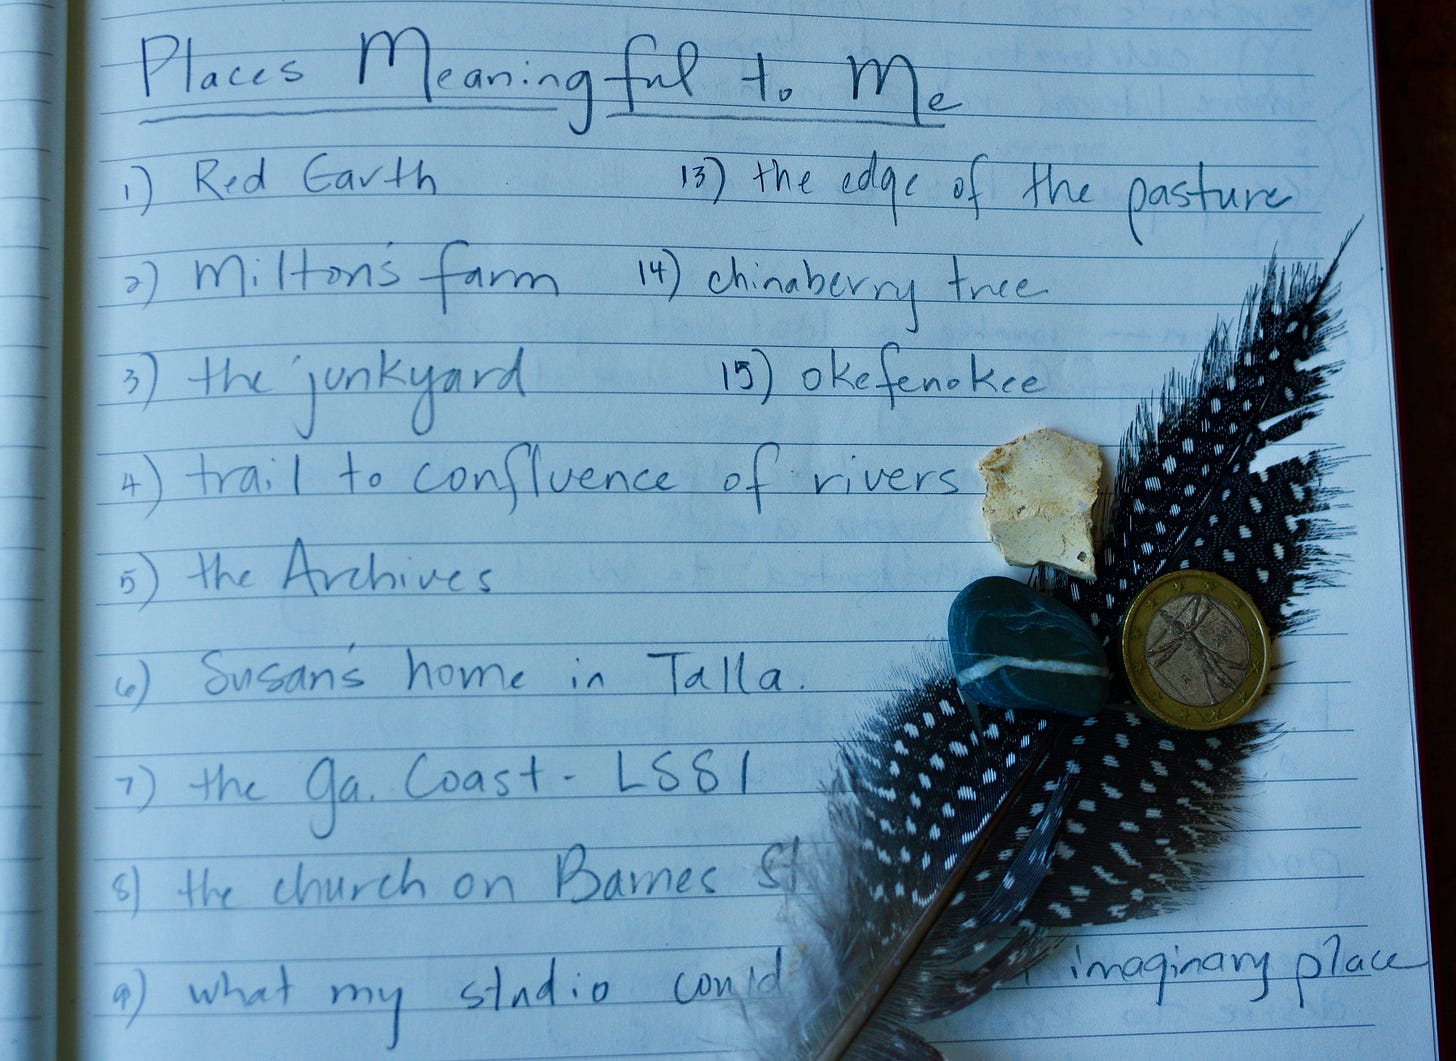 Places Meaningful to Me
1) Red Earth
2) Milton's farm
3) the junkyard
4) trail to confluence of rivers
5) the Archives
6) Susan's home in Talla.
7) the Ga. Coast - LSSI
8) the church on Barnes St
9) what my studio could imaginary place
13) the edge of the pasture
14) chinaberry tree
15) okefenokee